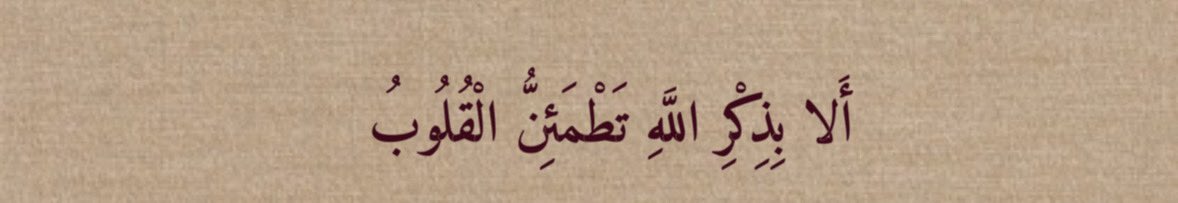 أَلا بِذِكْرِ اللَّهِ تَطْمَئِنُّ الْقُلُوبُ